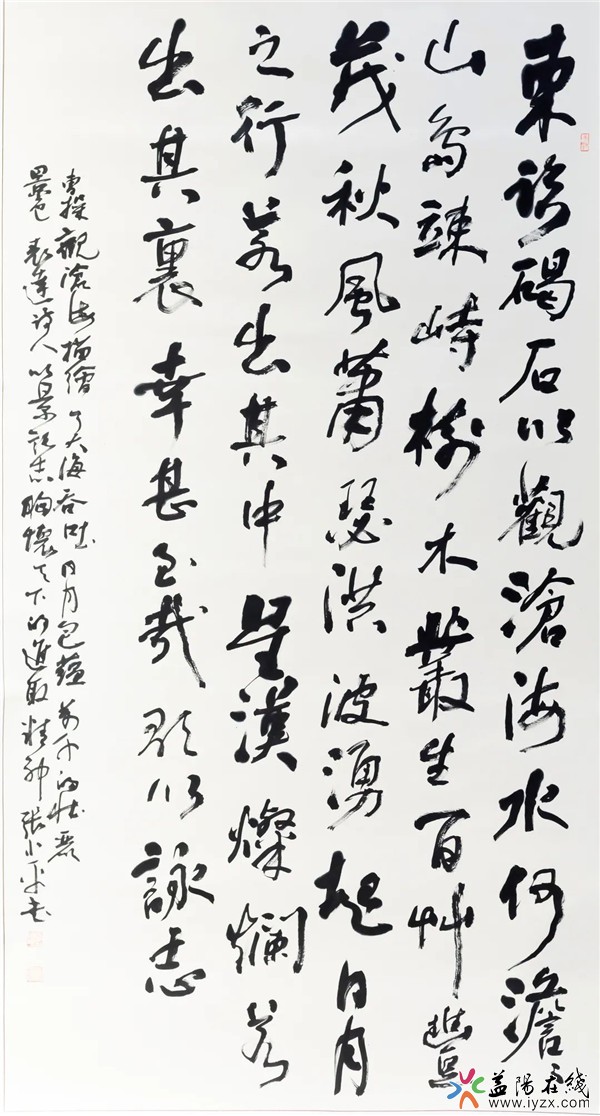 東臨碣石以觀滄海水何澹々
山島竦峙樹木叢生百艸豐
茂秋風蕭瑟洪波湧起日月
之行若出其中星漢燦爛若
出其裏幸甚至哉歌以詠志
曹操觀滄海描繪了大海吞吐日月包蘊萬千的壯麗
景色表達诗人以景託志胸懷天下的進取精神張小平书
益阳在线
www.iyzx.com